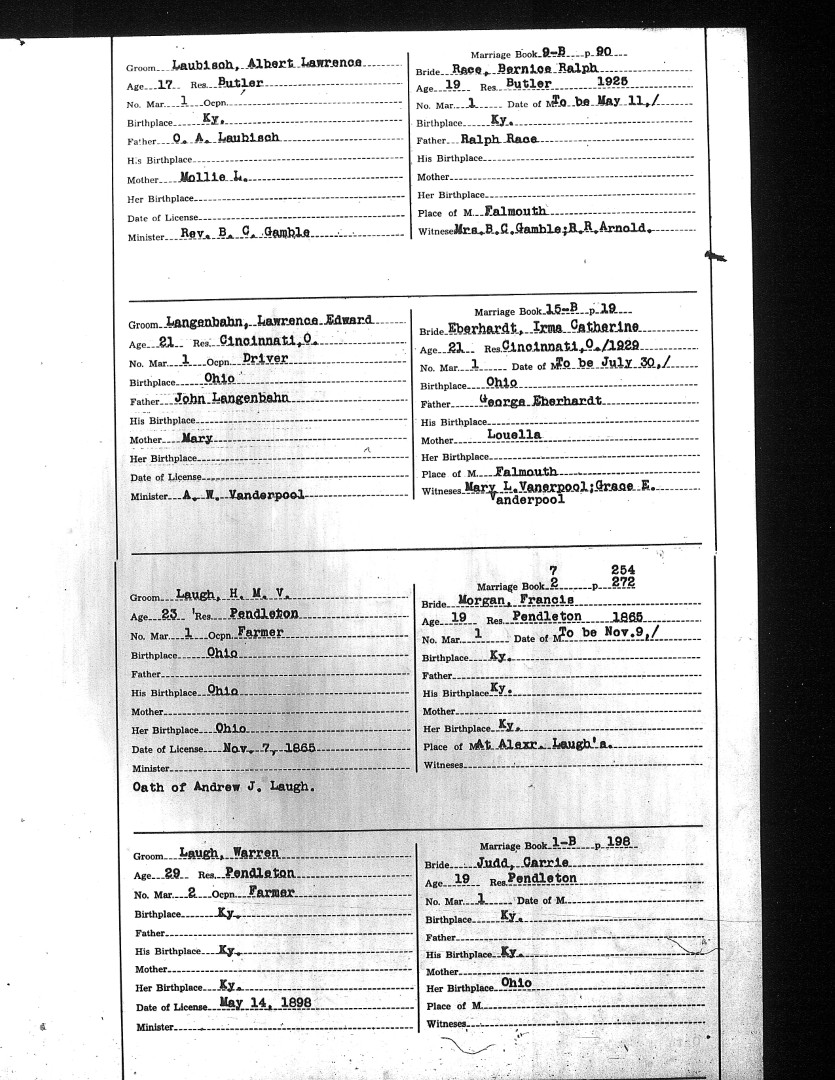 Marriage Book 9-B p 90
Groom Laubisch, Albert Lawrence
Bride Race, Bernice Ralph
Age 17 Res. Butler
Age 19 Res Butler 1925
No. Mar. 1 Ocpn.
No. Mar. 1 Date of M To be May 11,/
Birthplace Ky.
Birthplace Ky.
Father O. A. Laubisch
Father Ralph Race
His Birthplace
His Birthplace
Mother Mollie L.
Mother
Her Birthplace
Her Birthplace
Date of License
Place of M. Falmouth
Minister Rev. B. C. Gamble
Witnesses Mrs.B.C.Gamble;R.R.Arnold.
Marriage Book 15-B p 19
Groom Langenbahn, Lawrence Edward
Bride Eberhardt, Irma Catherine
Age 21 Res. Cincinnati,O.
Age 21 Res. Cincinnati,O./1929
No. Mar. 1 Ocpn. Driver
No. Mar. 1 Date of M To be July 30,/
Birthplace Ohio
Birthplace Ohio
Father John Langenbahn
Father George Eberhardt
His Birthplace
His Birthplace
Mother Mary
Mother Louella
Her Birthplace
Her Birthplace
Date of License
Place of M. Falmouth
Minister A. W. Vanderpool
Witnesses Mary L.Vanerpool;Grace E.
Vanderpool
7 254
Marriage Book 2 p 272
Groom Laugh, H. M. V.
Bride Morgan, Francis
Age 23 Res. Pendleton
Age 19 Res. Pendleton 1865
No. Mar. 1 Ocpn. Farmer
No. Mar. 1 Date of M To be Nov.9,/
Birthplace Ohio
Birthplace Ky.
Father
Father
His Birthplace Ohio
His Birthplace Ky.
Mother
Mother
Her Birthplace Ohio
Her Birthplace Ky.
Date of License Nov. 7, 1865
Place of M At Alexr. Laugh's.
Minister
Witnesses
Oath of Andrew J. Laugh.
Marriage Book 1-B p 198
Groom Laugh, Warren
Bride Judd, Carrie
Age 29 Res. Pendleton
Age 19 Res Pendleton
No. Mar. 2 Ocpn. Farmer
No. Mar. 1 Date of M.
Birthplace Ky.
Birthplace Ky.
Father
Father
His Birthplace Ky.
His Birthplace Ky.
Mother
Mother
Her Birthplace Ky.
Her Birthplace Ohio
Date of License May 14, 1898
Place of M.
Minister
Witnesses